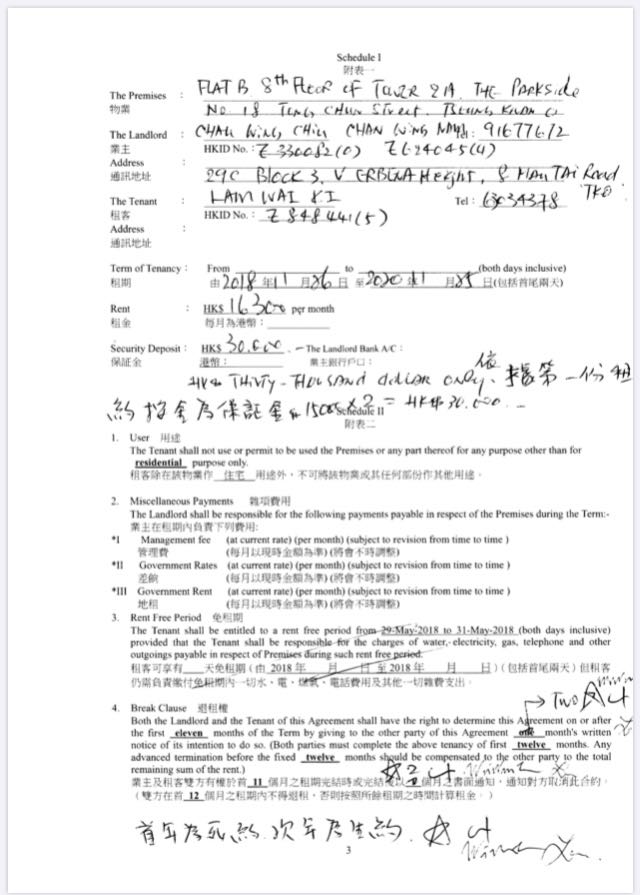 Schedule I
附表一
The Premises : FLAT B 8th Floor of Tower 2A, THE PARKSide
物業 No 18 Tong Chun Street.
The Landlord : CHAU WING CHIU CHAN WING 91677612
業主 HKID No. : Z 330082(0) Z624045(4)
Address : 29C Block 3, V ERBENA Height, 8 MAU TAI Road
通訊地址 TKO
The Tenant : LAM WAI KI Tel :
租客 HKID No. : Z848441(5)
Address :
通訊地址
Term of Tenancy : From to (both days inclusive)
租期 由 2018 年 11 月 26 日 至 2020 年 11 月 25 日(包括首尾兩天)
Rent : HK$ 16,300 per month
租金 每月為港幣：
Security Deposit : HK$ 30,000 .– The Landlord Bank A/C :
保証金 港幣： 業主銀行戶口：
HK$ THIRTY-THOUSAND dollar only. 依據第一份租
約按金為保証金 $15000 x 2 = HK$ 30,000.-
Schedule II
附表二
1. User 用途
The Tenant shall not use or permit to be used the Premises or any part thereof for any purpose other than for
residential purpose only.
租客除在該物業作 住宅 用途外，不可將該物業或其任何部份作其他用途。
2. Miscellaneous Payments 雜項費用
The Landlord shall be responsible for the following payments payable in respect of the Premises during the Term:-
業主在租期內負責下列費用:
*I Management fee (at current rate) (per month) (subject to revision from time to time )
管理費 (每月以現時金額為準) (將會不時調整)
*II Government Rates (at current rate) (per month) (subject to revision from time to time )
差餉 (每月以現時金額為準) (將會不時調整)
*III Government Rent (at current rate) (per month) (subject to revision from time to time )
地租 (每月以現時金額為準) (將會不時調整)
3. Rent Free Period 免租期
The Tenant shall be entitled to a rent free period from 29-May-2018 to 31-May-2018 (both days inclusive)
provided that the Tenant shall be responsible for the charges of water, electricity, gas, telephone and other
outgoings payable in respect of Premises during such rent free period.
租客可享有 天免租期 ( 由 2018 年 月 日 至 2018 年 月 日 ) ( 包括首尾兩天 ) 但租客
仍需負責繳付免租期內一切水、電、煤氣、電話費用及其他一切雜費支出。
→ TWO
4. Break Clause 退租權
Both the Landlord and the Tenant of this Agreement shall have the right to determine this Agreement on or after
the first eleven months of the Term by giving to the other party of this Agreement one month's written
notice of its intention to do so. (Both parties must complete the above tenancy of first twelve months. Any
advanced termination before the fixed twelve months should be compensated to the other party to the total
remaining sum of the rent.)
業主及租客雙方有權於首 11 個月之租期完結時或完結後以 個月之書面通知，通知對方取消此合約。
( 雙方在首 12 個月之租期內不得退租，否則按照所餘租期之時間計算租金。 )
首年為死約.次年為生約.
3